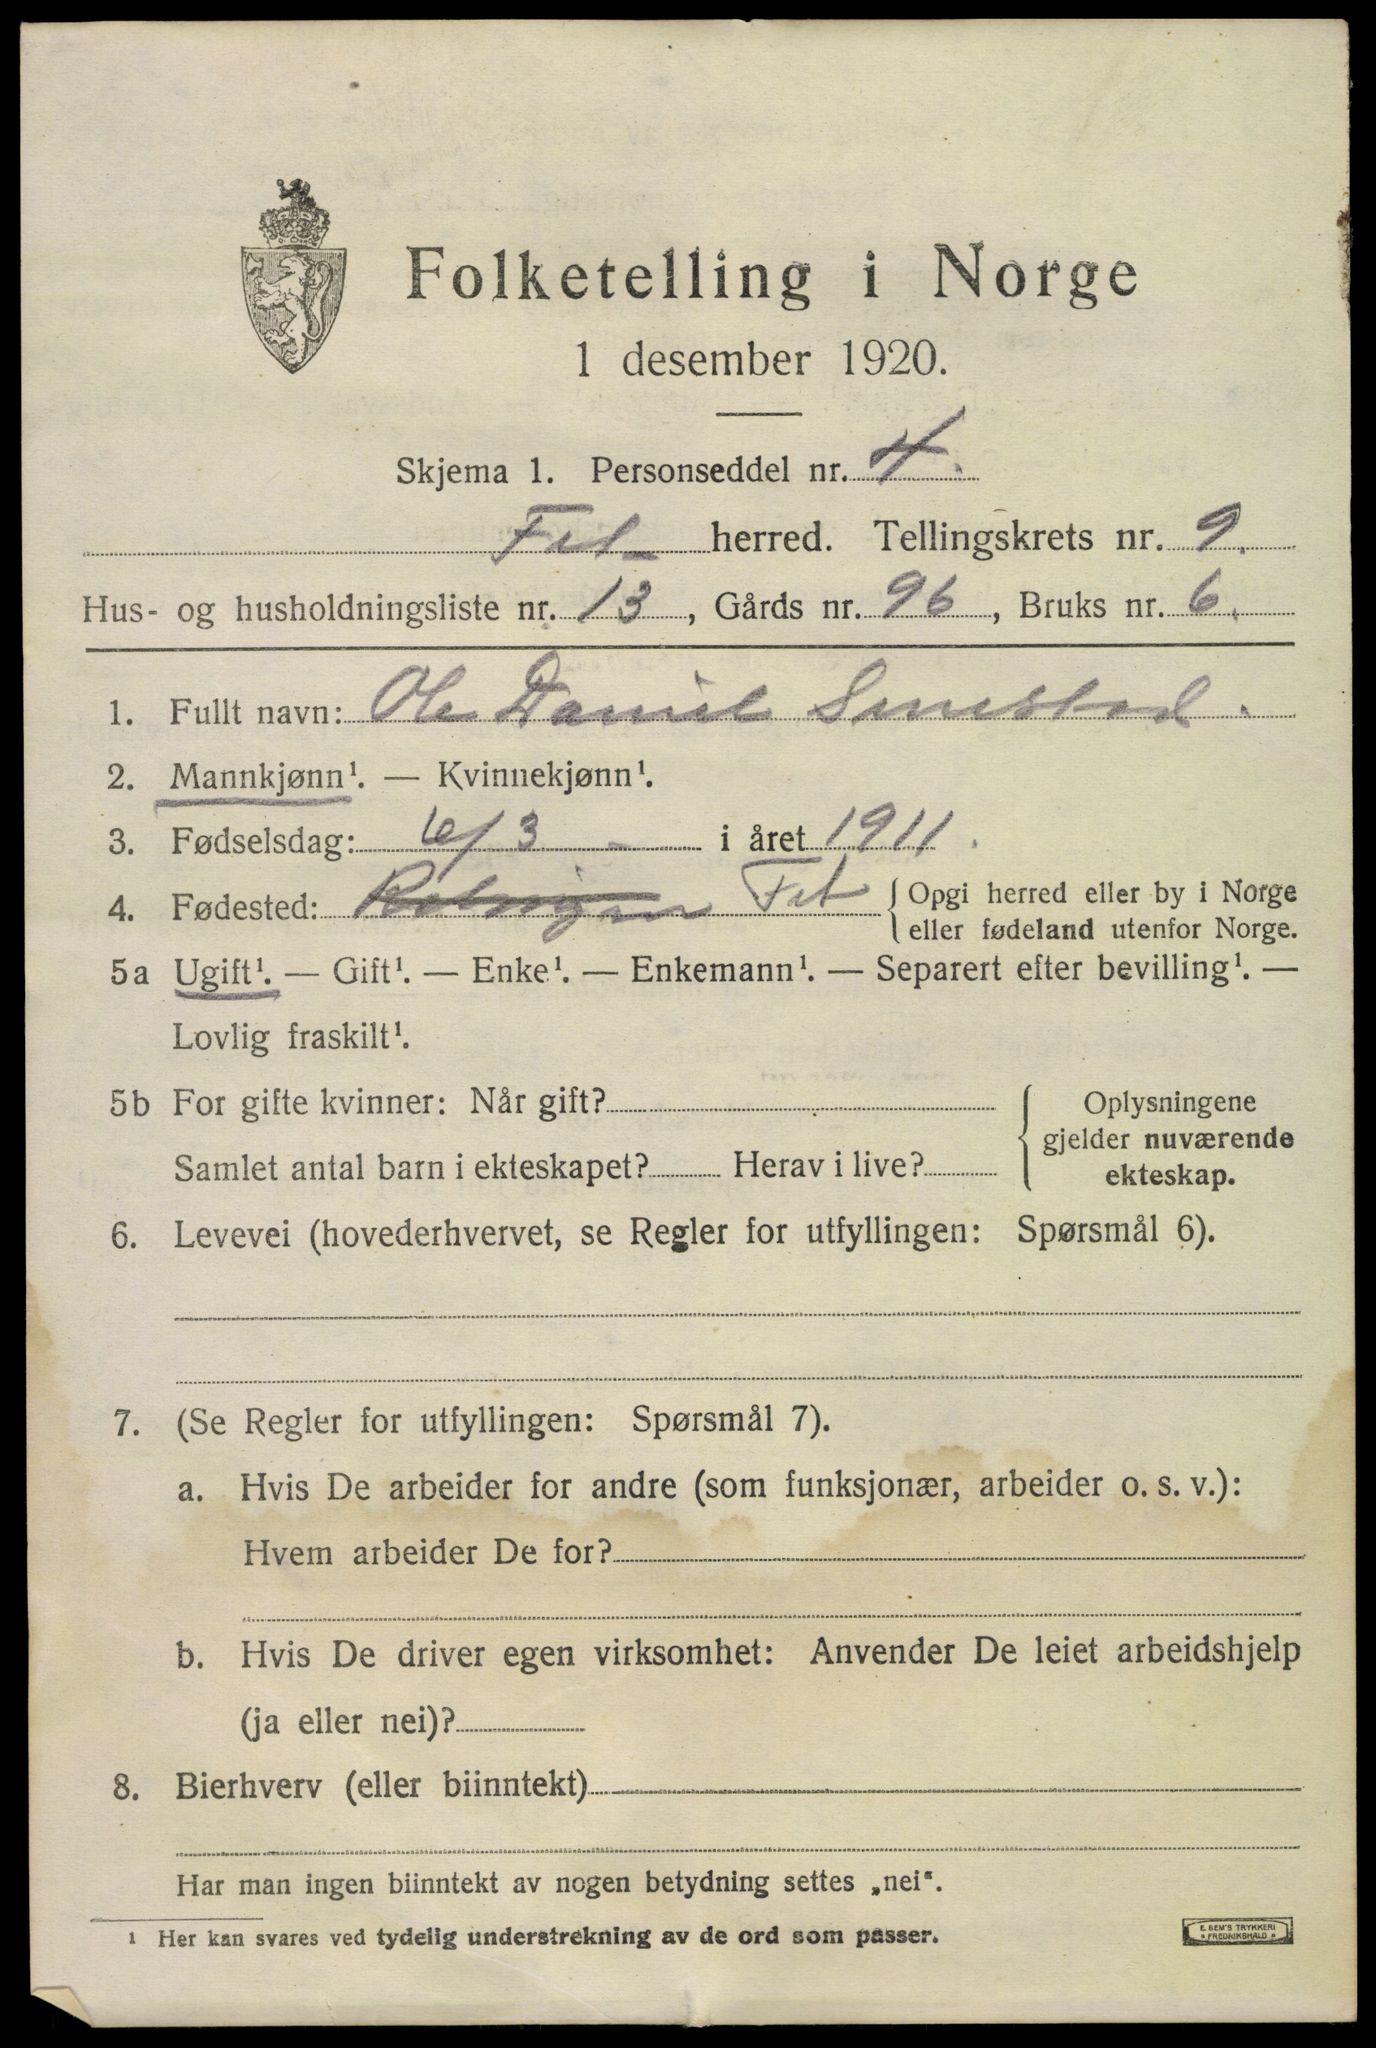 Folketelling i Norge
1 desember 1920.
Skjema 1. Personseddel nr. 4.
Fet herred. Tellingskrets nr. 9.
Hus- og husholdningsliste nr. 13, Gårds nr. 96, Bruks nr. 6.
1. Fullt navn: Ole Daniel
2. Mannkjønn¹. — Kvinnekjønn¹.
3. Fødselsdag: 6/3 - i året 1911.
4. Fødested: Fet { Opgi herred eller by i Norge
eller fødeland utenfor Norge.
5a Ugift¹. — Gift¹. — Enke¹. — Enkemann¹. — Separert efter bevilling¹. —
Lovlig fraskilt¹.
5b For gifte kvinner: Når gift?
Samlet antal barn i ekteskapet? Herav i live?
{ Oplysningene
gjelder nuværende
ekteskap.
6. Levevei (hovederhvervet, se Regler for utfyllingen: Spørsmål 6).
7. (Se Regler for utfyllingen: Spørsmål 7).
a. Hvis De arbeider for andre (som funksjonær, arbeider o. s. v.):
Hvem arbeider De for?
b. Hvis De driver egen virksomhet: Anvender De leiet arbeidshjelp
(ja eller nei)?
8. Bierhverv (eller biinntekt)
Har man ingen biinntekt av nogen betydning settes „nei“.
¹ Her kan svares ved tydelig understrekning av de ord som passer.
E. SEM'S TRYKKERI
* FREDRIKSHALD *